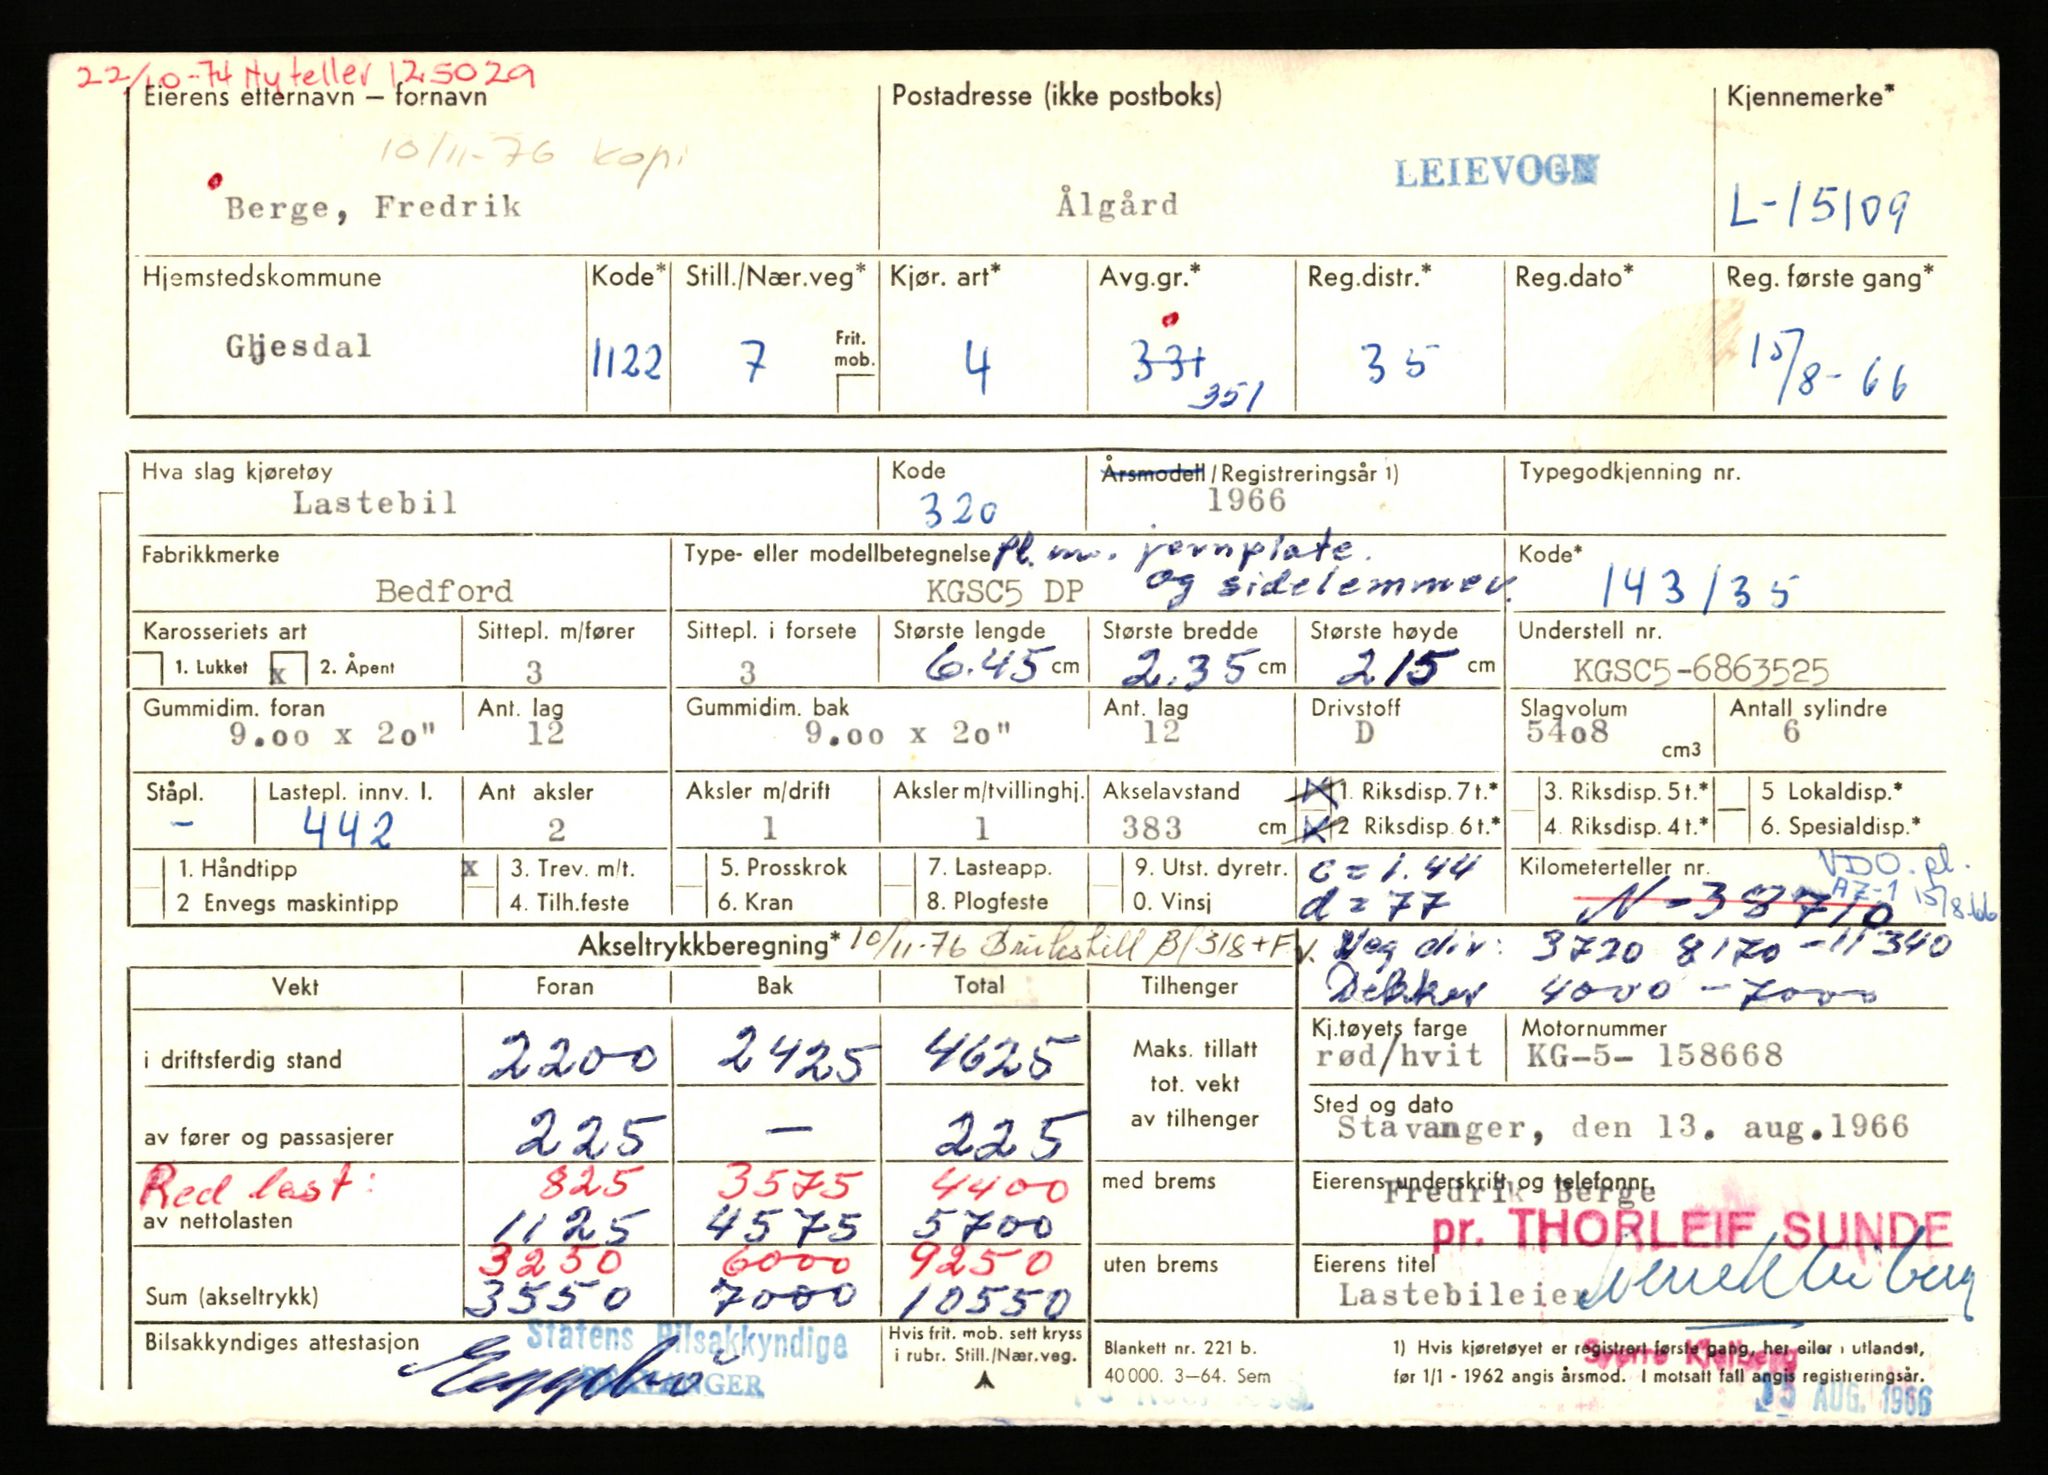 22/10-74 Ny teller 125029
Eierens etternavn — fornavn
Postadresse (ikke postboks)
Kjennemerke*
10/11-76 kopi
LEIEVOGN
Berge, Fredrik
Ålgård
L-15109
Hjemstedskommune
Kode*
Still./Nær.veg*
Kjør. art*
Avg.gr.*
Reg.distr.*
Reg.dato*
Reg. første gang*
Gjesdal
1122
7
Frit. mob.
4
331
351
35
15/8-66
Hva slag kjøretøy
Kode
Årsmodell/Registreringsår 1)
Typegodkjenning nr.
Lastebil
320
1966
Fabrikkmerke
Type- eller modellbetegnelse
pl. m. jernplate.
Kode*
Bedford
KGSC5 DP
og sidelemmer.
143/35
Karosseriets art
Sittepl. m/fører
Sittepl. i forsete
Største lengde
Største bredde
Største høyde
Understell nr.
1. Lukket
x
2. Åpent
3
3
6.45 cm
2.35 cm
215 cm
KGSC5-6863525
Gummidim. foran
Ant. lag
Gummidim. bak
Ant. lag
Drivstoff
Slagvolum
Antall sylindre
9.00 x 20"
12
9.00 x 20"
12
D
5408 cm3
6
Ståpl.
Lastepl. innv. l.
Ant aksler
Aksler m/drift
Aksler m/tvillinghj.
Akselavstand
1. Riksdisp. 7 t.*
3. Riksdisp. 5 t.*
5 Lokaldisp.*
-
442
2
1
1
383 cm
2 Riksdisp. 6 t.*
4. Riksdisp. 4 t.*
6. Spesialdisp.*
1. Håndtipp
x
3. Trev. m/t.
5. Prosskrok
7. Lasteapp.
9. Utst. dyretr.
c = 1.44
Kilometerteller nr.
VDO. pl.
A7-1 15/8.66
2 Envegs maskintipp
4. Tilh.feste
6. Kran
8. Plogfeste
0. Vinsj
d = 77
N-38710
Akseltrykkberegning*
10/11-76 Brukstill Bl 318+F.
V. Veg dir: 3720 8170 - 11340
Vekt
Foran
Bak
Total
Tilhenger
Dekker 4000 - 7000
Kj.tøyets farge
Motornummer
i driftsferdig stand
2200
2425
4625
Maks. tillatt
tot. vekt
av tilhenger
rød/hvit
KG-5- 158668
Sted og dato
av fører og passasjerer
225
—
225
Stavanger, den 13. aug.1966
Red last:
825
3575
4400
med brems
Eierens underskrift og telefonnr.
Fredrik Berge
av nettolasten
1125
4575
5700
pr. THORLEIF SUNDE
3250
6000
9250
uten brems
Eierens titel
Sum (akseltrykk)
3550
7000
10550
Lastebileier
Bilsakkyndiges attestasjon
Statens Bilsakkyndige
STAVANGER
Hvis frit. mob. sett kryss
i rubr. Still./Nær.veg.
Blankett nr. 221 b.
40 000. 3—64. Sem
1) Hvis kjøretøyet er registrert første gang, her eller i utlandet,
før 1/1 - 1962 angis årsmod. I motsatt fall angis registreringsår.
15 AUG. 1966